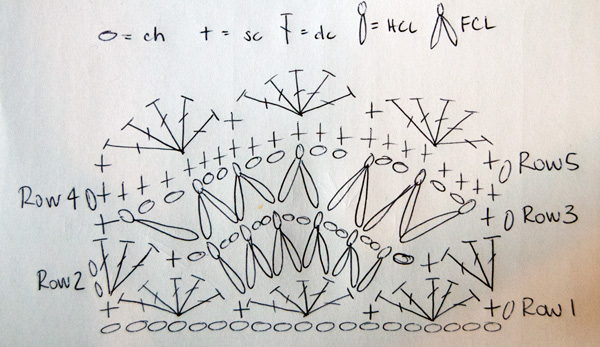 = ch + = sc = dc = HCL FCL
Row5
Row4
Row3
Row2
Row1